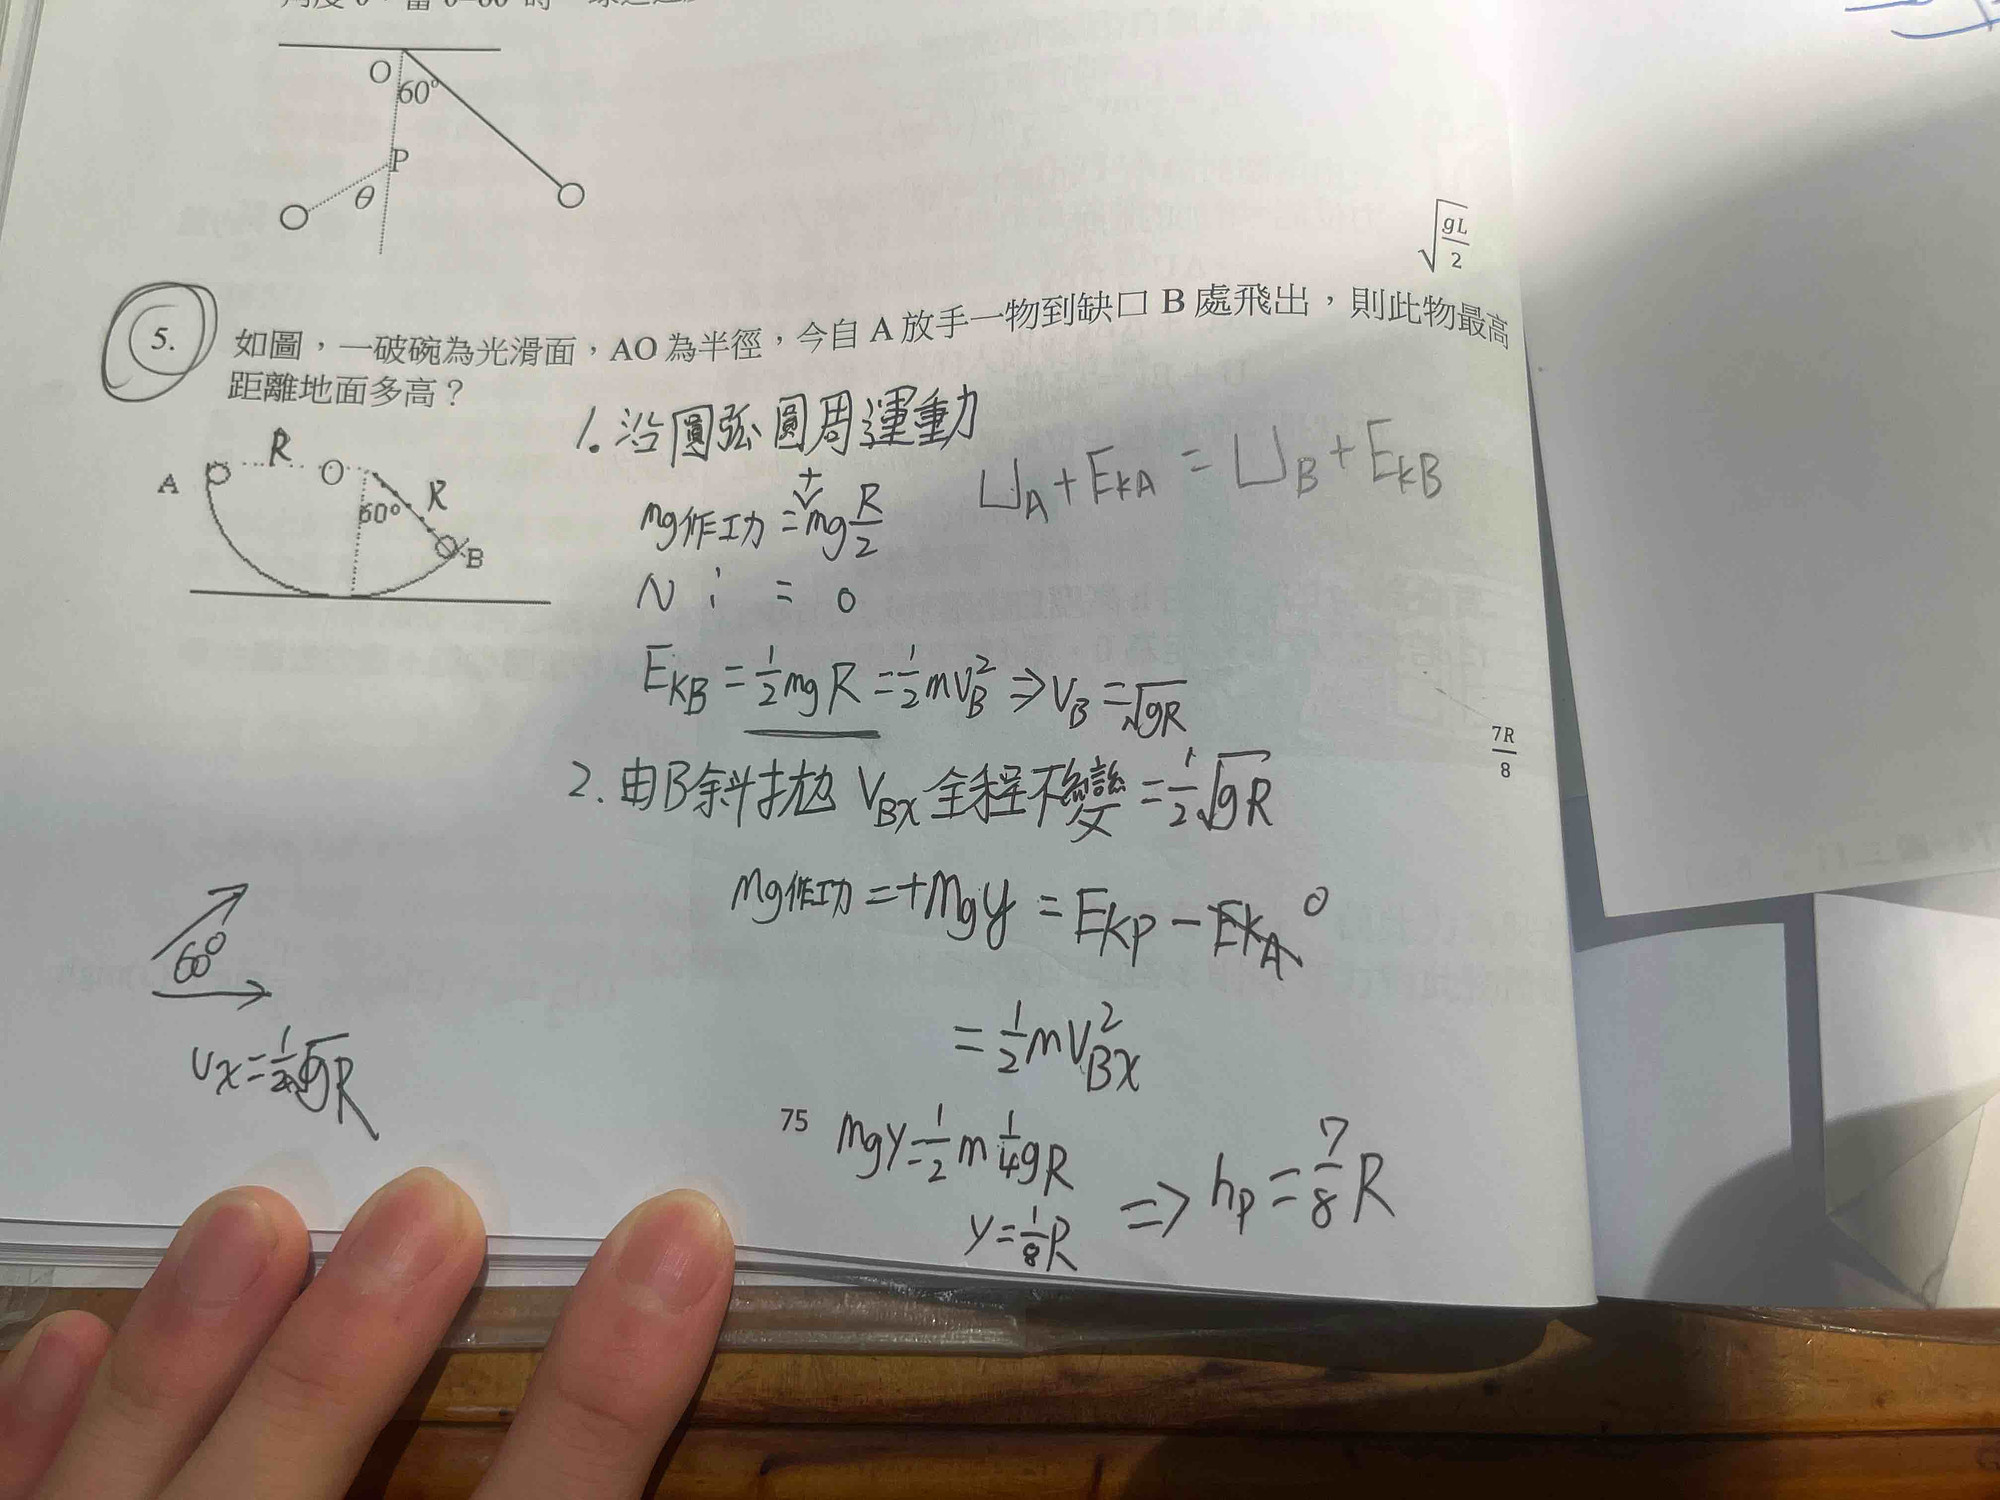 O
60°
P
θ
√gL/2
5. 如圖，一破碗為光滑面，AO 為半徑，今自 A 放手一物到缺口 B 處飛出，則此物最高
距離地面多高？
1. 沿圓弧圓周運動
R
A
O
R
60°
B
mg作功 = +mg R/2
U_A + E_KA = U_B + E_KB
N : = 0
E_KB = 1/2 mg R = 1/2 m V_B² ⇒ V_B = √gR
7R/8
2. 由B斜拋 V_Bx 全程不變 = 1/2 √gR
mg作功 = +mgy = E_KP − E_KA 0
60°
= 1/2 m V_Bx²
Vx = 1/2 √gR
75
mgy = 1/2 m 1/4 gR
y = 1/8 R
⇒ h_P = 7/8 R